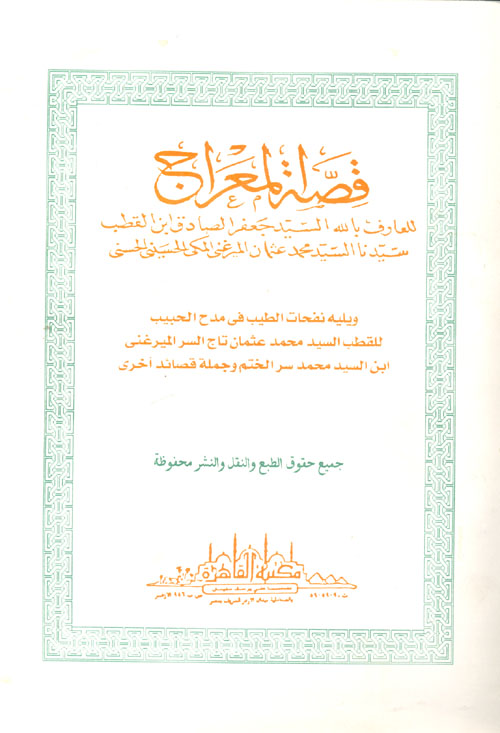 قصة المعراج
للعارف بالله السيد جعفر الصادق ابن القطب
سيدنا السيد محمد عثمان الميرغني المكي الحسيني الحسني
ويليه نفحات الطيب فى مدح الحبيب
للقطب السيد محمد عثمان تاج السر الميرغنى
ابن السيد محمد سر الختم وجملة قصائد أخرى
جميع حقوق الطبع والنقل والنشر محفوظة
مكتبة القاهرة